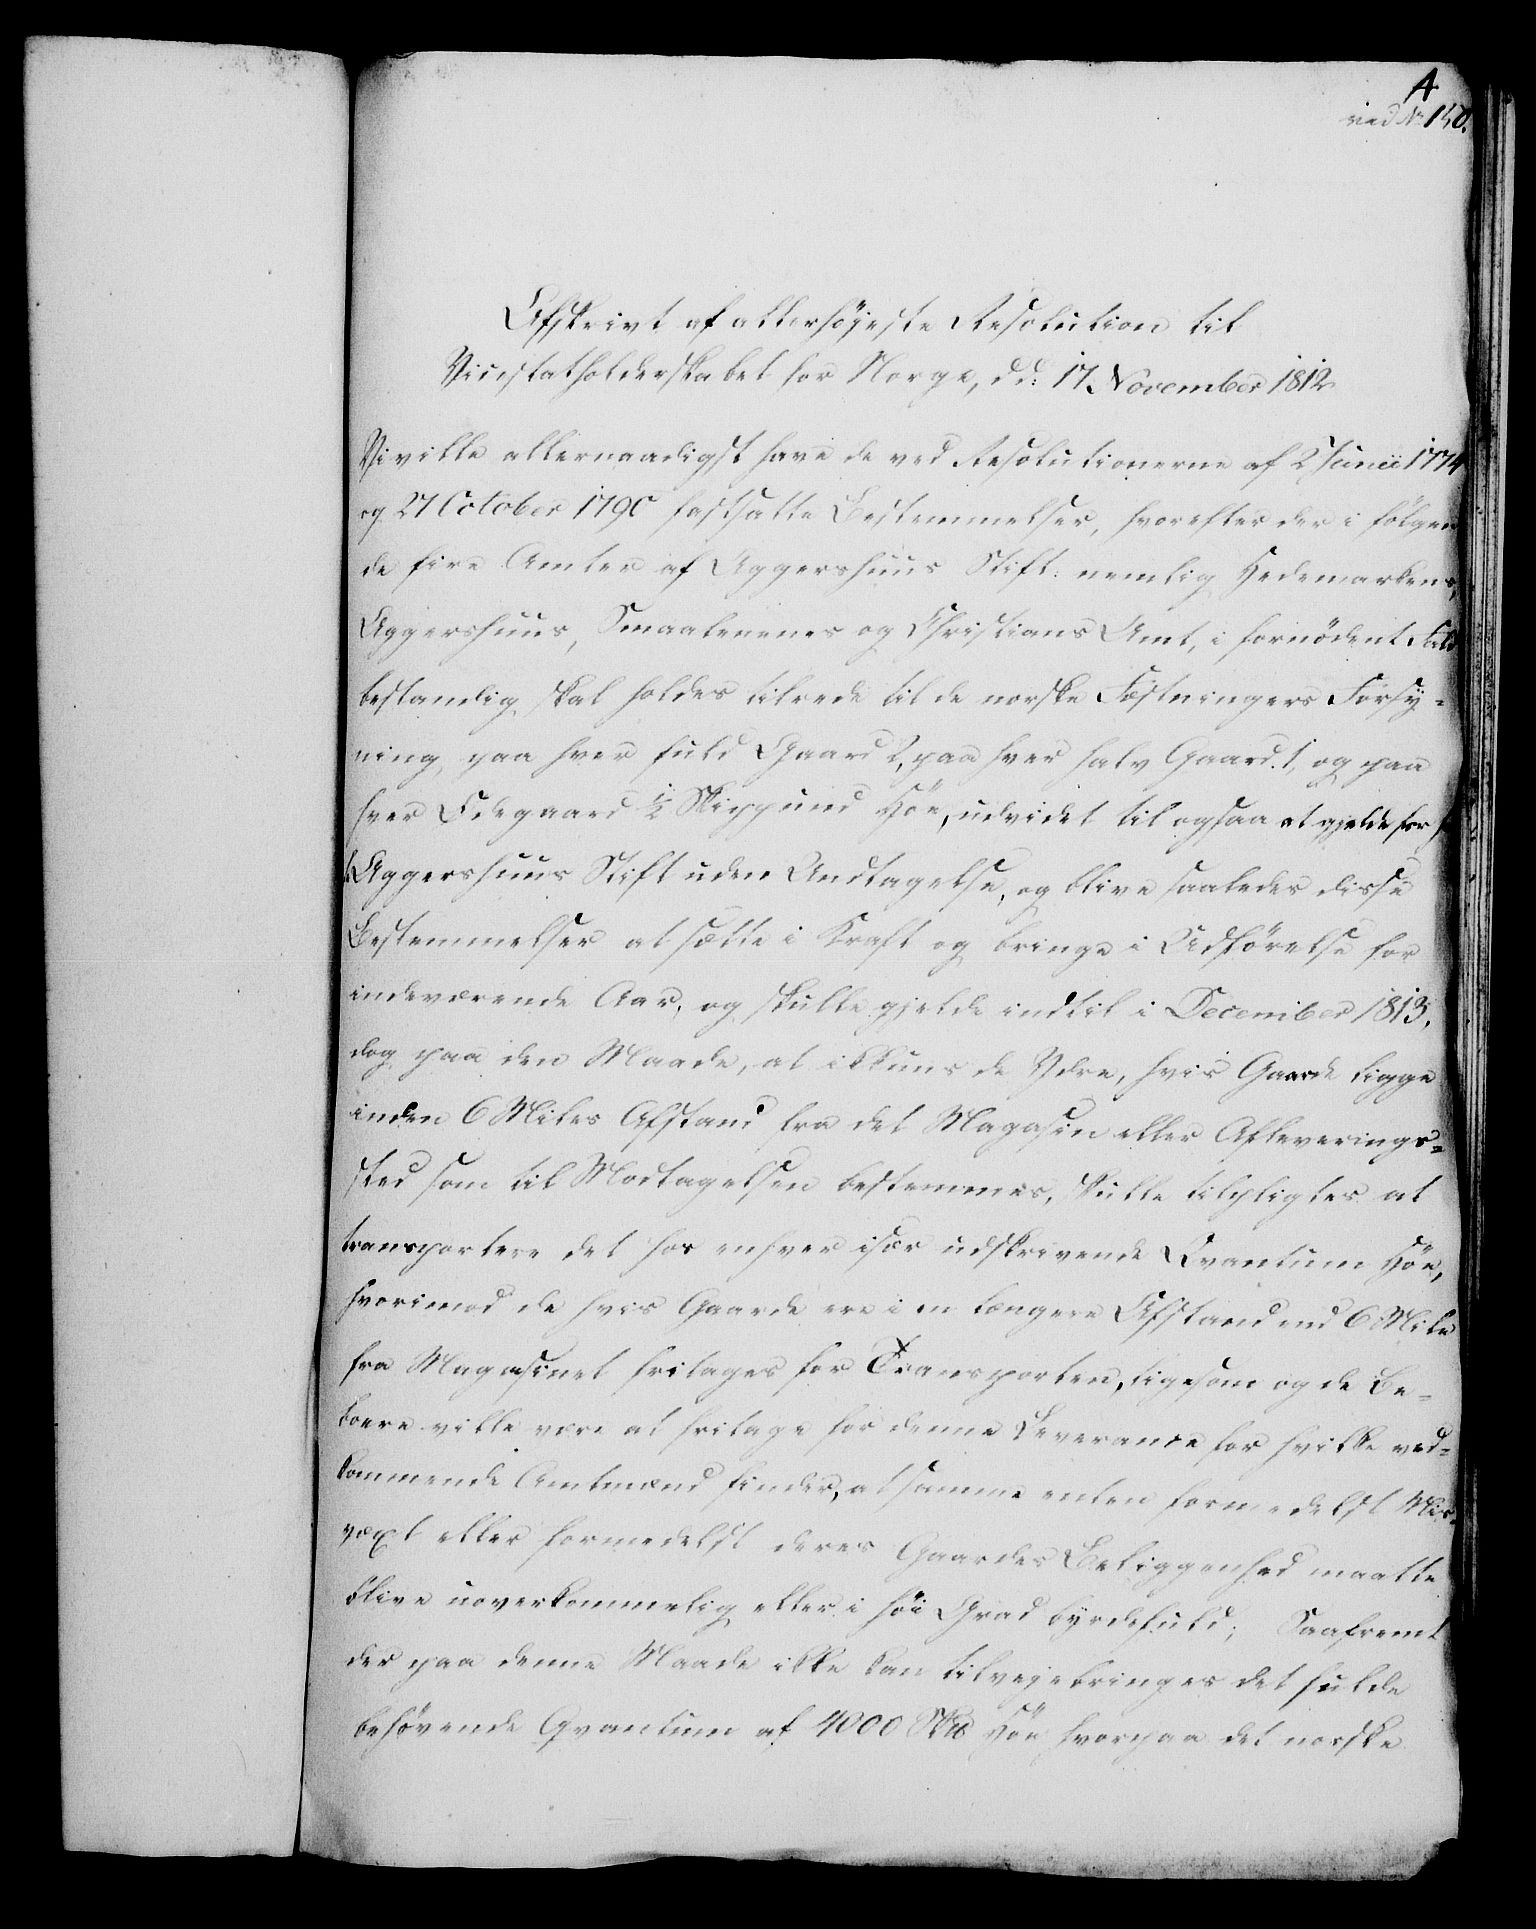 A
ved No 150.
Afskrivt af allerhöjeste Resolution til
Vicestatholderskabet for Norge, dd: 17 November 1812
Vi ville allernaadigst have de ved Resolutionerne af 2 Junii 1774
og 27 October 1790 fastsatte Bestemmelser, hvorefter der i fölgen
de fire Amter af Aggershuus Stift: nemlig Hedemarkens,
Aggershuus, Smaalenenes og Christians Amt, i fornödent Fald
bestandig skal holdes tilrede til de norske Fæstningers Forsy-
ning, paa hver fuld Gaard 2, paa hver halv Gaard 1, og paa
hver Ödegaard ½ Skippund Höe, udvidet til ogsaa at gjelde for
Aggershuus Stift uden Undtagelse, og blive saaledes disse
Bestemmelser at sætte i Kraft og bringe i Udförelse for
indeværende Aar, og skulle gjelde indtil i December 1813,
dog paa den Maade, at ikkuns de Ydre, hvis Gaarde ligge
inden 6 Miles Afstand fra det Magasin eller Afleverings-
sted som til Modtagelsen bestemmes, skulle tilpligtes at
transportere det hos enhver især udskrivende Qvantum Höe,
hvorimod de hvis Gaarde ere i en længere Afstand end 6 Mile
fra Magasinet fritages for Transporten, ligesom og de Be-
boere ville være at fritage for denne Leverance for hvilke ved-
kommende Amtmænd finder, at samme enten formedelst Mis-
væxt eller formedelst deres Gaardes Beliggenhed maatte
blive uoverkommelig eller i höi Grad byrdefuld; Saafremt
der paa denne Maade ikke kan tilvejebringes det fulde
behövende Qvantum af 4000 Skpd Höe hvorpaa det norske